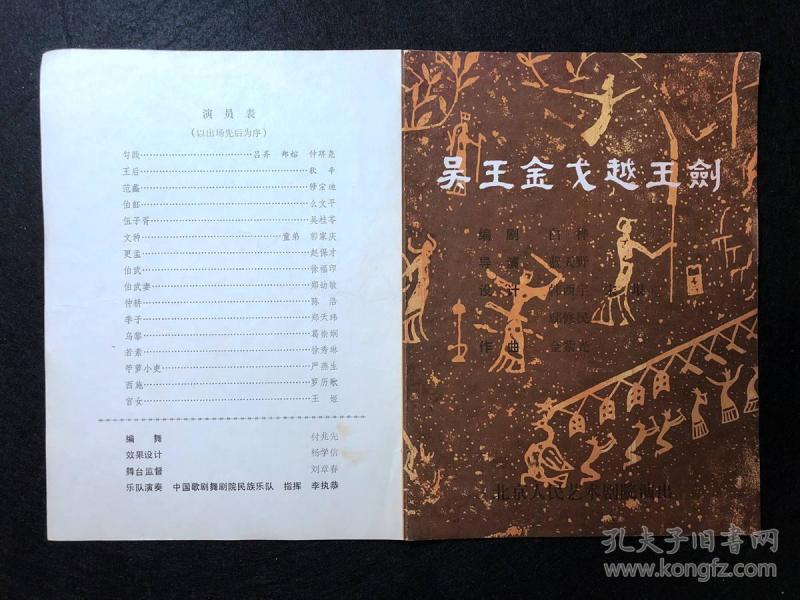 演员表
(以出场先后为序)
勾践……吕齐 郑榕 仲跻尧
王后……狄辛
范蠡……修宗迪
伯嚭……么文平
伍子胥……吴桂苓
文种……童弟 郭家庆
更孟……赵保才
伯武……徐福印
伯武妻……郑幼敏
仲耕……陈浩
季子……郑天玮
乌黎……葛崇娴
若素……徐秀琳
苧萝小吏……严燕生
西施……罗历歌
宫女……王姬
编舞 付兆先
效果设计 杨学信
舞台监督 刘章春
乐队演奏 中国歌剧舞剧院民族乐队 指挥 李执恭
吴王金戈越王剑
编剧 白桦
导演 蓝天野
设计 韩西宇
鄢修民
作曲 金紫光
北京人民艺术剧院演出
孔夫子旧书网
www.kongfz.com